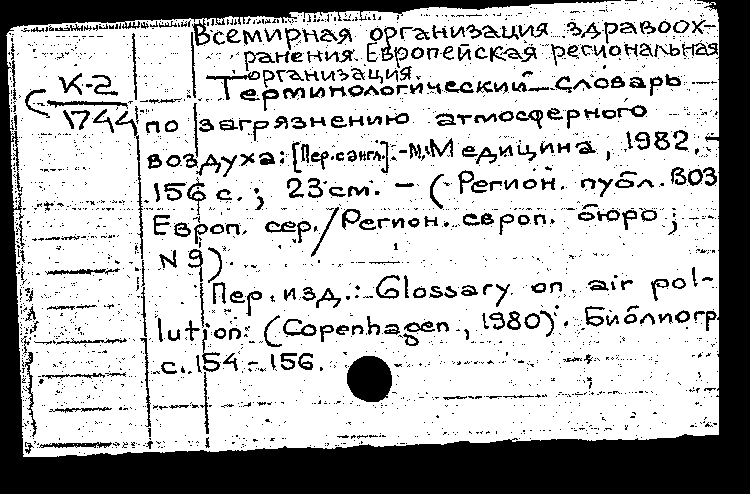 Всемирная организация здравоох-
ранения. Европейская региональная
организация.
Терминологический словарь
К-2
1744
по загрязнению атмосферного
воздуха: [Пер. с англ.]. - М.: Медицина, 1982. -
156 с.; 23 см. - (Регион. публ. ВОЗ
Европ. сер. / Регион. европ. бюро;
N 9).
Пер. изд.: Glossary on air pol-
lution. (Copenhagen, 1980). Библиогр.
с. 154-156.